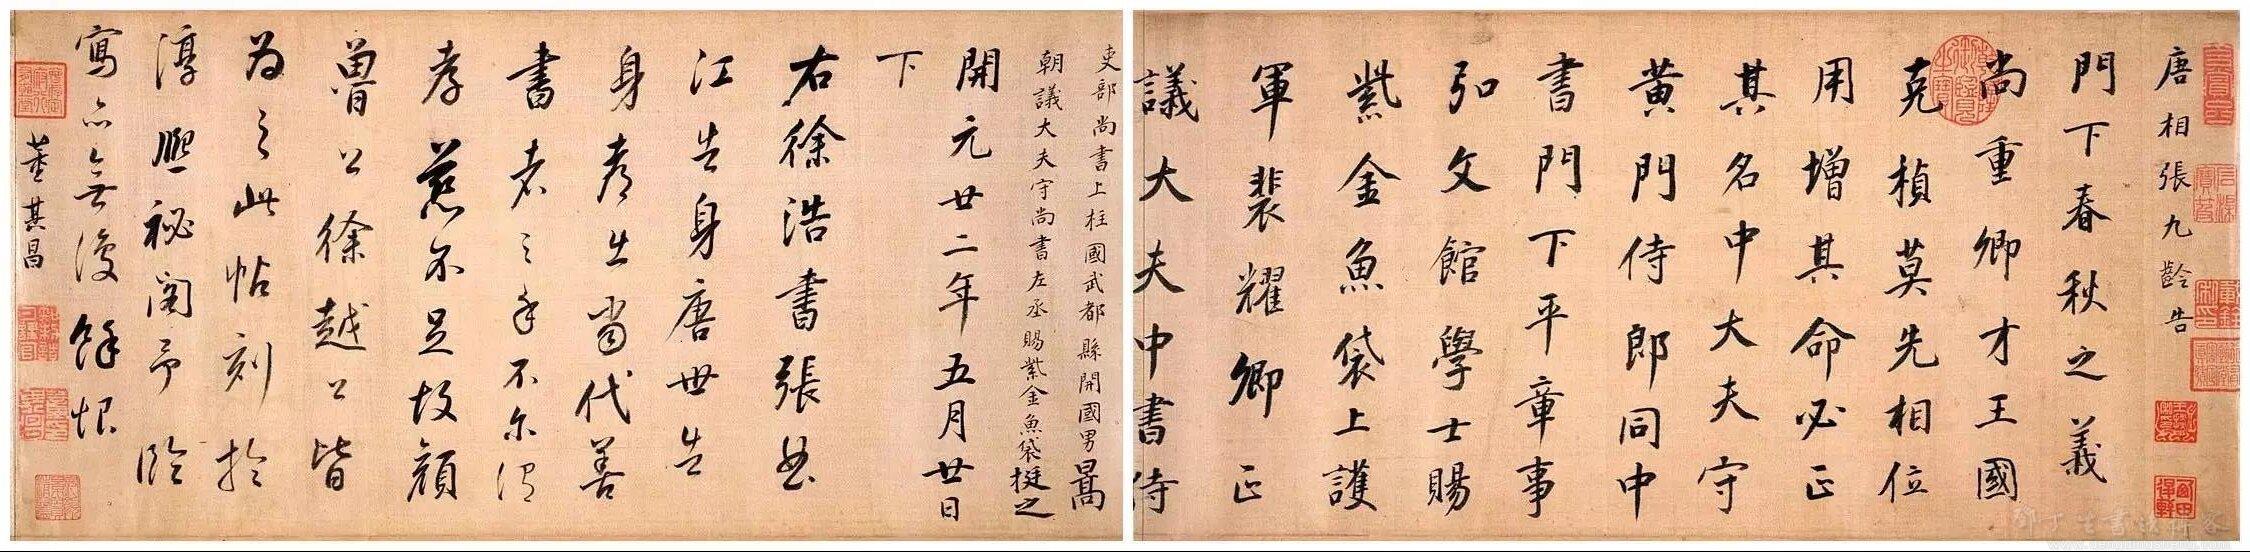 唐相張九齡告
門下春秋之義
尚重卿才王國
克楨莫先相位
用增其命必正
其名中大夫守
黃門侍郎同中
書門下平章事
弘文館學士賜
紫金魚袋上護
軍裴耀卿正
議大夫中書侍
吏部尚書上柱國武都縣開國男暠
朝議大夫守尚書左丞賜紫金魚袋挺之
開元廿二年五月廿日
下
右徐浩書張曲
江告身唐世告
身考出當代善
書者之手不爾謂
孝慈不足故顏
魯公徐越公皆
為之此帖刻於
淳熙祕閣予臨
寫亦無復餘恨
董其昌